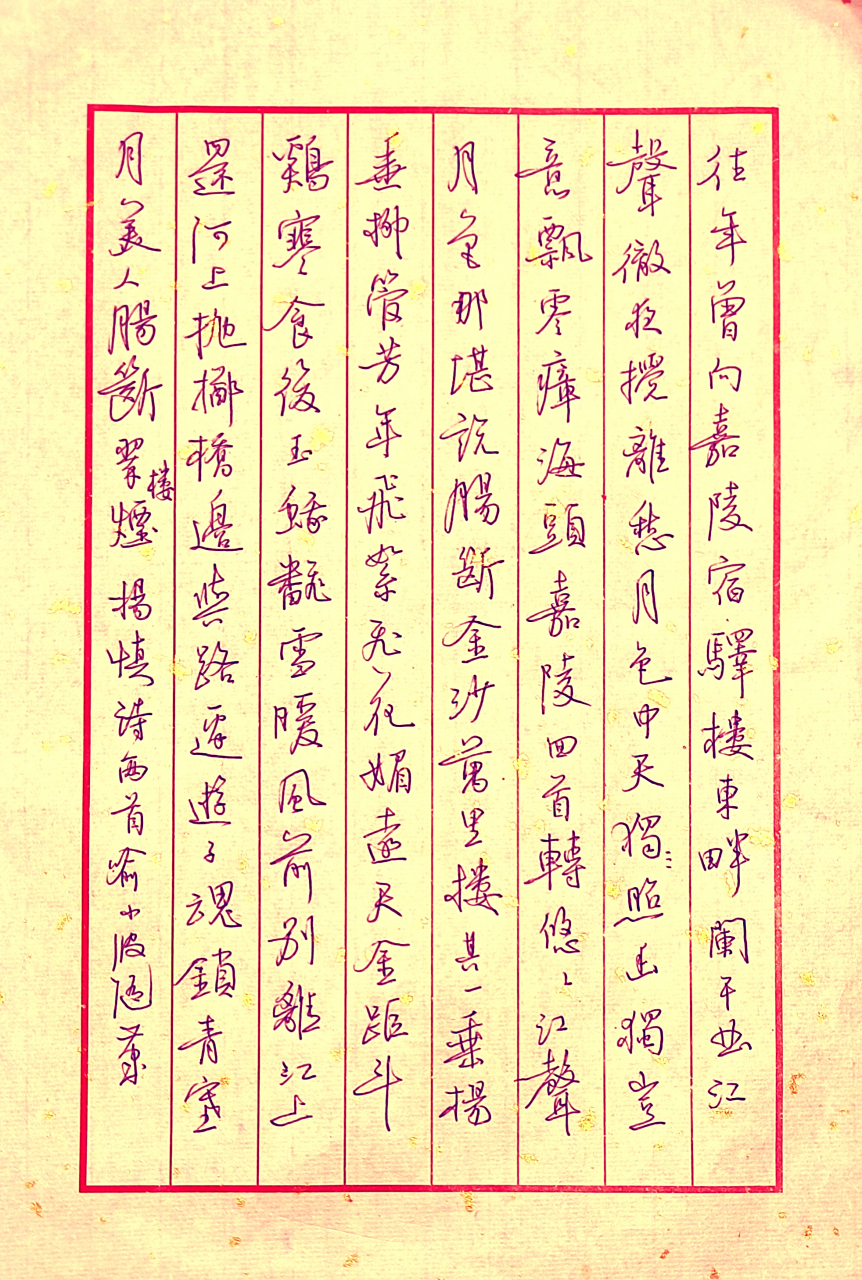 往年曾向嘉陵宿驛樓東畔闌干曲江
聲徹夜攪離愁月色中天獨照幽獨豈
意飄零瘴海頭嘉陵回首轉悠々江聲
月色那堪說腸斷金沙萬里樓其一垂楊
垂柳管芳年飛絮飛花媚遠天金距斗
鷄寒食後玉蛾翻雪暖風前別離江上
還河上拋擲橋邊與路邊遊子魂鎖青塞
月美人腸斷翠樓煙楊慎詩兩首喻小波